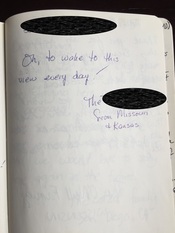 Oh, to wake to this
view every day!
The
from Missouri
& Kansas